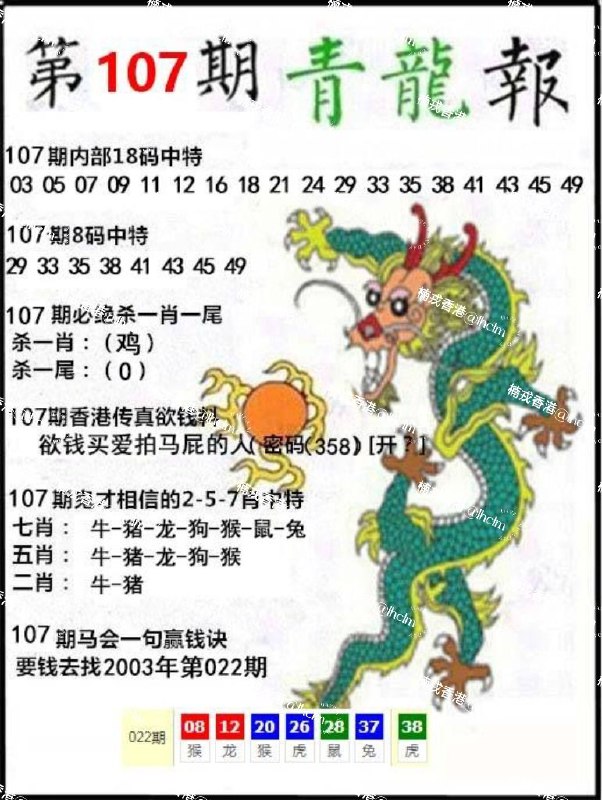 第107期青龍報
107期内部18码中特
03 05 07 09 11 12 16 18 21 24 29 33 35 38 41 43 45 49
107期8码中特
29 33 35 38 41 43 45 49
107期必
杀一肖一尾
杀一肖：（鸡）
杀一尾：（0）
107期香港传真欲钱
欲钱买爱拍马屁的人(密码(358)[开？]
107期
才相信的2-5-7肖中特
七肖： 牛-猪-龙-狗-猴-鼠-兔
五肖： 牛-猪-龙-狗-猴
二肖： 牛-猪
107期马会一句赢钱诀
要钱去找2003年第022期
022期 08 12 20 26 28 37 38
猴 龙 猴 虎 鼠 兔 虎
楠戎香港@lhclm
楠戎香港@lhclm
楠戎香港
@lhclm
@lhclm